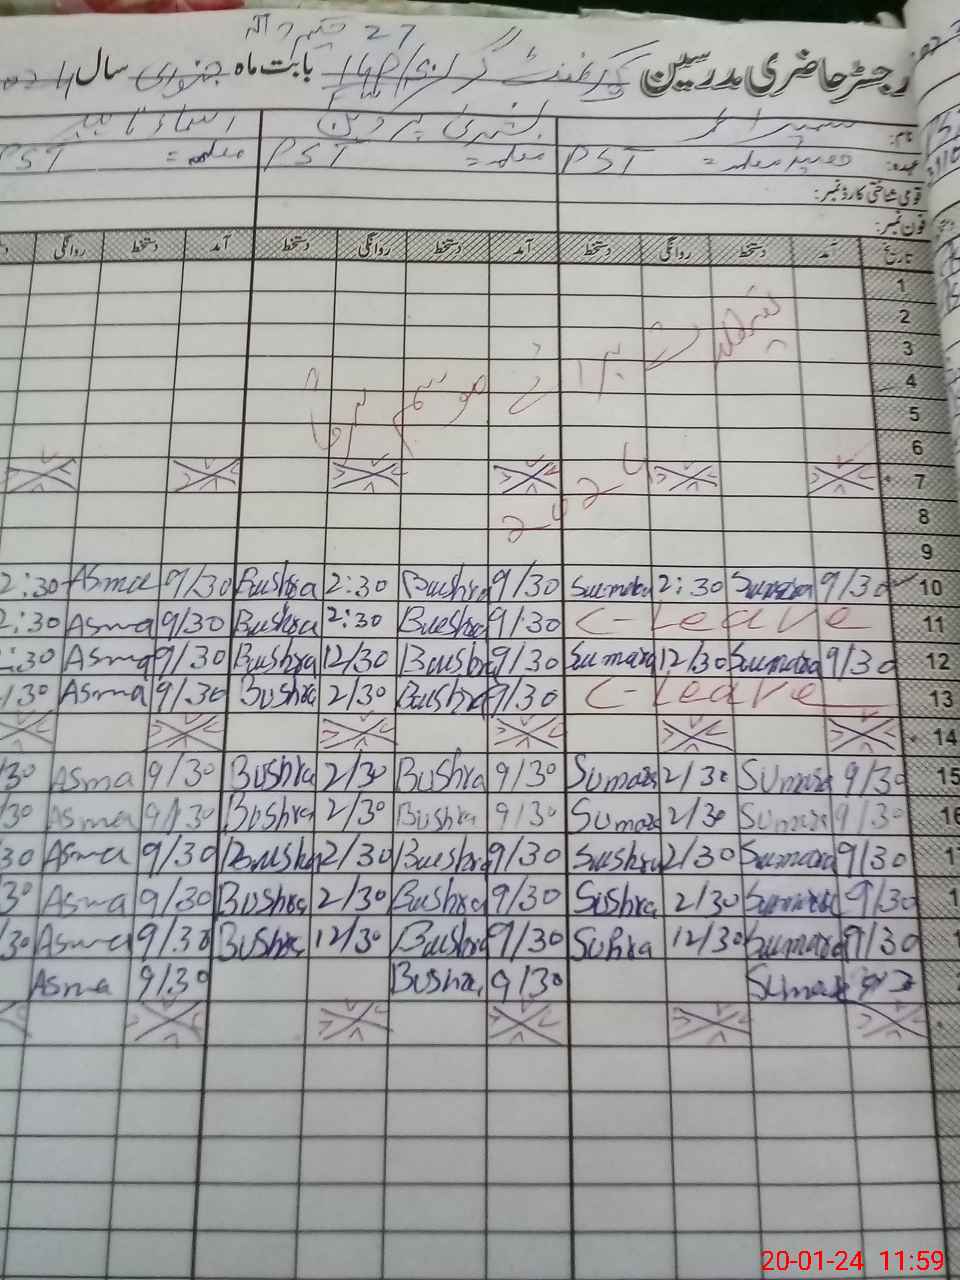 27
رجسٹر حاضری مدرسین گورنمنٹ گرلز بابت ماہ جنوری سال
نام:
عہدہ: PST معلمہ = PST معلمہ = PST
قومی شناختی کارڈ نمبر:
فون نمبر:
تاریخ آمد دستخط روانگی دستخط آمد دستخط روانگی دستخط آمد دستخط روانگی
1
2
3
4
5
6
7
تعطیلات برائے موسم سرما
2024
8
9
10 9/30 Sumara 2:30 Sumara 9/30 Bushra 2:30 Bushra 9/30 Asma 2:30
11 C-Leave 9/30 Bushra 2:30 Bushra 9/30 Asma 2:30
12 9/30 Sumara 12/30 Sumara 9/30 Bushra 12/30 Bushra 9/30 Asma :30
13 C-Leave 9/30 Bushra 2/30 Bushra 9/30 Asma /30
14
15 9/30 Sumara 2/30 Sumara 9/30 Bushra 2/30 Bushra 9/30 Asma /30
16 9/30 Sumara 2/30 Sumara 9/30 Bushra 2/30 Bushra 9/30 Asma /30
9/30 Sumara 2/30 Sushra 9/30 Bushra 2/30 Bushra 9/30 Asma 30
9/30 Sumara 2/30 Sushra 9/30 Bushra 2/30 Bushra 9/30 Asma 30
9/30 Sumara 12/30 Suhra 9/30 Bushra 12/30 Bushra 9/30 Asma /30
Sumara 9/30 Bushra 9/30 Asma
20-01-24 11:59